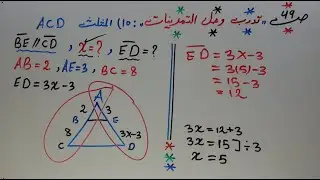 صـ 49 تدرب وحل التمرينات: 10) المثلث ACD
BE // CD , x = ? , ED = ?
AB = 2 , AE = 3 , BC = 8
ED = 3x - 3
A
2 3
B E
8 3x-3
C D
ED = 3x - 3
= 3(5) - 3
= 15 - 3
= 12
3x = 12 + 3
3x = 15] ÷ 3
x = 5